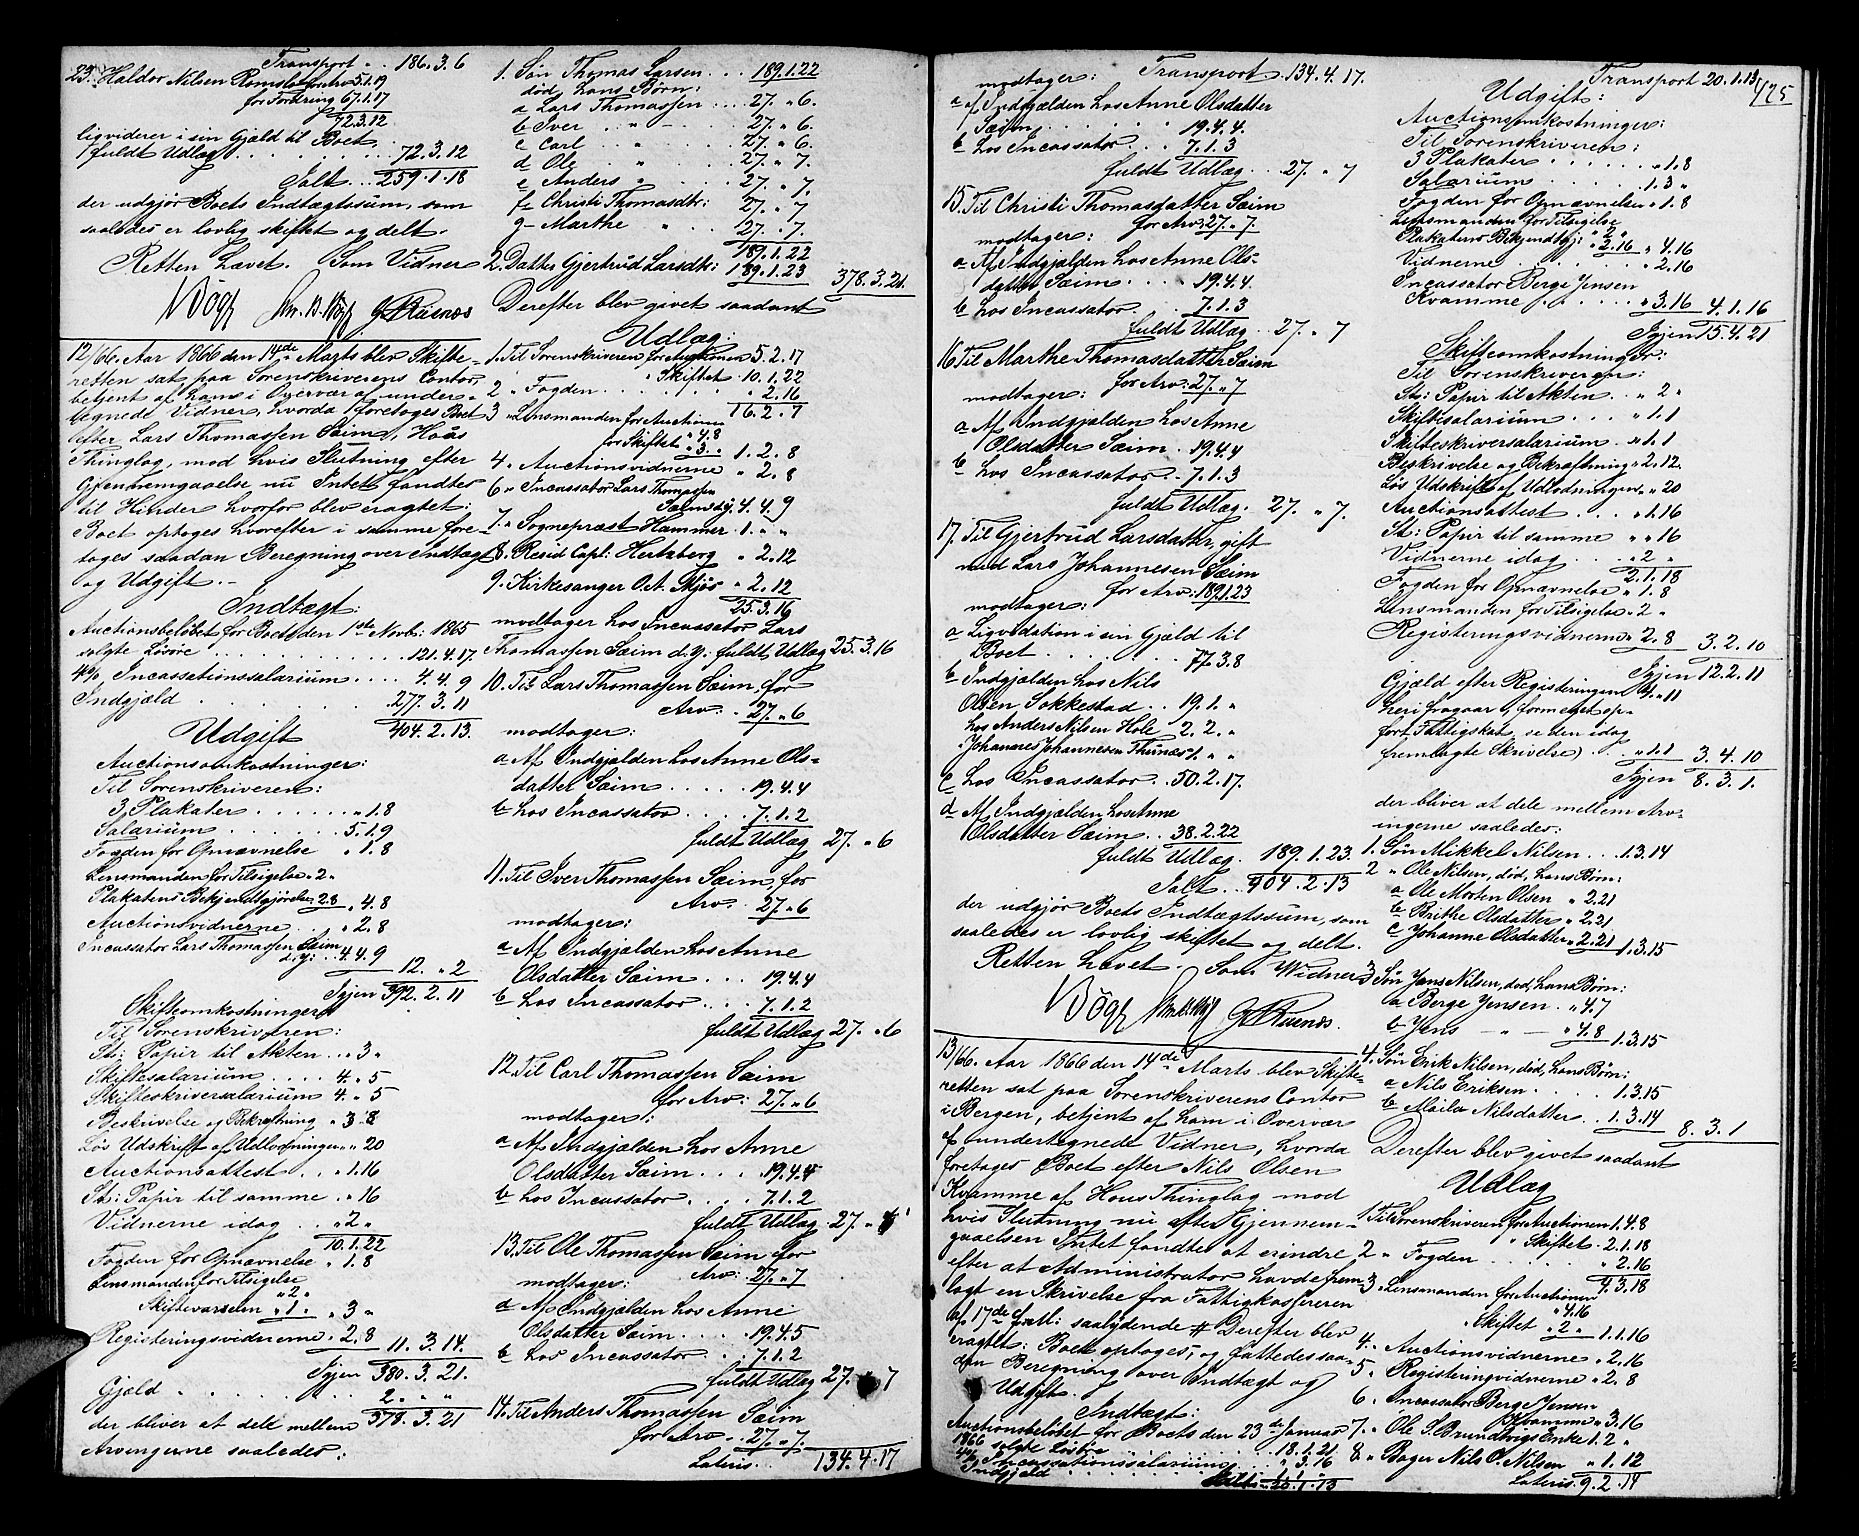 Transport . . 186.3.6
23. Haldor Nilsen Romslo for Arv 5.1.19
for Fordring 67.1.17
72.3.12
ligviderer i sin Gjæld til Boet
fuldt Udlæg . . . . . . 72.3.12
Ialt . . 259.1.18
der udgjør Boets Indtægtssum, som
saaledes er lovlig skiftet og delt.
Retten hævet. Som Vidner
12/66. Aar 1866 den 14de Marts blev Skifte-
retten sat paa Sorenskriverens Contor,
betjent af ham i Overvær af under-
tegnede Vidner, hvorda foretoges Boet
efter Lars Thomassen Sæim, Houss
Thinglag, mod hvis Slutning efter
Gjennemgaaelse nu Intet fandtes
til Hinder hvorfor blev eragtet:
Boet optoges hvorefter i samme fore-
toges saadan Beregning over Indtægt
og Udgift. –
Indtægt:
Auctionsbeløbet for Boets den 1ste Novb: 1865
solgte Løsøre . . . . . 121.4.17.
4% Incassationssalarium . . . . 4.4.9
Indgjæld . . . . . . 277.3.11
404.2.13.
Udgift
Auctionsomkostninger:
Til Sorenskriveren:
3 Plakater . . . . . . „ 1.8
Salarium . . . . . . 5.1.9
Fogden for Opnævnelse „ 1.8
Lensmanden for Tilsigelse „ 2 „
Plakatens Bekjendtgjørelse 2.8 „ 4.8
Auctionsvidnerne . . „ 2.8
Incassator Lars Thomassen Sæim
d. y: . . 4.4.9
12. „ 2
Igjen 392.2.11
Skifteomkostninger
Til Sorenskriveren:
St: Papir til Akten . . „ 3 „
Skiftesalarium . . . . 4. „ 5
Skifteskriversalarium 4. „ 5
Beskrivelse og Bekræftning „ 3.8
Løs Udskrift af Udlodningen „ „ 20
Auctionsattest . . „ 1.16
St: Papir til samme . „ „ 16
Vidnerne idag . . „ 2 „
10.1.22
Fogden for Opnævnelse „ 1.8
Lensmanden for Tilsigelse
„ 2 „
Skiftevarselen „ 1 „ „ 3 „
Registeringsvidnerne „ 2.8 11.3.14.
Igjen 380.3.21.
Gjæld . . . . . . 2. „ „
378.3.21
der bliver at dele mellem
Arvingerne saaledes:
1. Søn Thomas Larsen . . . 189.1.22
død, hans Børn:
a Lars Thomassen . . . . 27. „ 6.
b Iver „ – 27. „ 6.
c Carl „ 27. „ 6.
d Ole „ 27. „ 7.
e Anders „ 27. „ 7.
f Christi Thomasdtr: 27. „ 7
g – Marthe „ 27. „ 7.
189.1.22
2. Datter Gjertrud Larsdtr: 189.1.23 378.3.21.
Derefter blev givet saadant
Udlæg:
1. Til Sorenskriveren for Auctionen 5.2.17
„ Skiftet . 10.1.22
2 „ Fogden . . . . . . „ 2.16
16.2.7
3 „ Lensmanden for Auctionen
„ 4.8
for Skiftet „ 3. „ 1.2.8
4. „ Auctionsvidnerne „ 2.8
6. „ Incassator Lars Thomassen
Sæim d. y. 4.4.9
7. „ Sognepræst Hammer . 1. „ „
8. „ Resid. Capl: Hertzberg „ 2.12
9. „ Kirkesanger O. A. Mjøs „ 2.12
25.3.16
modtager hos Incassator Lars
Thomassen Sæim d. y. fuldt Udlæg 25.3.16
10. Til Lars Thomassen Sæim, for
Arv . . 27. „ 6
modtager:
a Af Indgjælden hos Anne Ols-
datter Sæim . . . . . 19.4.4
b hos Incassator . . . . 7.1.2
fuldt Udlæg 27. „ 6
11. Til Iver Thomassen Sæim, for
Arv . . 27. „ 6
modtager:
a Af Indgjælden hos Anne
Olsdatter Sæim . . . 19.4.4
b hos Incassator . . . 7.1.2
fuldt Udlæg 27. „ 6
12. Til Carl Thomassen Sæim
for Arv: 27. „ 6
modtager:
a Af Indgjælden hos Anne
Olsdatter Sæim . . . 19.4.4
b hos Incassator . . . 7.1.2
fuldt Udlæg . 27. „ 6
13. Til Ole Thomassen Sæim for
Arv: 27. „ 7
modtager:
a Af Indgjælden hos Anne
Olsdatter Sæim . . . . 19.4.5
b hos Incassator . . 7.1.2
fuldt Udlæg 27. „ 7
14. Til Anders Thomassen Sæim
for Arv . . 27. „ 7.
Lateris . . 134.4.17
Transport . 134.4.17.
modtager:
a af Indgjælden hos Anne Olsdatter
Sæim . . . . . . 19.4.4.
b hos Incassator . . 7.1.3
fuldt Udlæg . . 27. „ 7
15. Til Christi Thomasdatter Sæim
for Arv: 27. „ 7.
modtager:
a Af Indgjælden hos Anne Ols-
datter Sæim . . . . 19.4.4
b hos Incassator . . . . 7.1.3
fuldt Udlæg . . 27. „ 7
16. Til Marthe Thomasdatter Sæim
for Arv: 27. „ 7
modtager:
a Af Indgjælden hos Anne
Olsdatter Sæim . 19.4.4
b hos Incassator . . 7.1.3
fuldt Udlæg . 27. „ 7.
17. Til Gjertrud Larsdatter, gift
med Lars Johannesen Sæim
for Arv: 189.1.23
modtager:
a Ligvidation i sin Gjæld til
Boet . . . . . . 77.3.8
b Indgjælden hos Nils
Olsen Sokkestad . . 19.1. „
hos Anders Nilsen Hole 2.2. „
„ Johannes Johannesen Thunæs 1. „ „
c hos Incassator . . 50.2.17.
d Af Indgjælden hos Anne
Olsdatter Sæim . . 38.2.22
fuldt Udlæg . 189.1.23.
Ialt . . 404.2.13
der udgjør Boets Indtægtssum, som
saaledes er lovlig skiftet og delt.
Retten hævet. Som Vidner
13/66. Aar 1866 den 14de Marts blev Skifte-
retten sat paa Sorenskriverens Contor
i Bergen, betjent af ham i Overvær
af undertegnede Vidner, hvorda
foretoges Boet efter Nils Olsen
Kvamme af Hous Thinglag mod
hvis Slutning nu efter Gjennem-
gaaelsen Intet fandtes at erindre
efter at Administrator havde frem-
lagt en Skrivelse fra Fattigkassereren
af 17de f. M: saalydende # Derefter blev
eragtet: Boet optoges, og fattedes saa-
dan Beregning over Indtægt og
Udgift.
Indtægt:
Auctionsbeløbet for Boets den 23de Januar
1866 solgte Løsøre . . . . 18.1.21
4% Incassationssalarium . . . „ 3.16
Indgjæld . . . . . . 1. „ „
20.1.13
Transport 20.1.13 425
Udgift:
Auctionsomkostninger:
Til Sorenskriveren:
3 Plakater . . . . . . „ 1.8
Salarium . . . . . 1.3 „
Fogden for Opnævnelse „ 1.8
Lensmanden for Tilsigelse
„ 2 „
Plakatens Bekjendtgj: „ 2.16 „ 4.16
Vidnerne . . . . . . . „ 2.16
Incassator Berge Jensen
Kvamme . . . . . „ 3.16 4.1.16
Igjen 15.4.21
Skifteomkostninger:
Til Sorenskriveren:
St: Papir til Akten . . „ 2 „
Skiftesalarium . . . „ 1.1
Skifteskriversalarium . „ 1.1
Beskrivelse og Bekræftning „ 2.12.
Løs Udskrift af Udlodningen „ „ 20
Auctionsattest . . . „ 1.16
St: Papir til samme „ „ 16
Vidnerne idag . . . „ 2 „
2.1.18
Fogden for Opnævnelse „ 1.8
Lensmanden for Tilsigelse „ 2 „
Registeringsvidnerne „ 2.8 3.2.10
Igjen 12.2.11
Gjæld efter Registeringen 4. „ 11
heri fragaar 9, formeget op-
ført Fattigskat, se den idag
fremlagte Skrivelse) . . „ 1.1 3.4.10
Igjen 8.3.1.
der bliver at dele mellem Arv-
ingerne saaledes:
1. Søn Mikkel Nilsen . . . 1.3.14
2 „ Ole Nilsen, død, hans Børn:
a Ole Morten Olsen „ 2.21
b Brithe Olsdatter „ 2.21
c Johanne Olsdatter „ 2.21 1.3.15
3 Søn Jens Nilsen, død, hans Børn:
a Berge Jensen . . „ 4.7
b Jens – „ – „ 4.8 1.3.15
4. Søn Erik Nilsen, død, hans Børn:
a Nils Eriksen . . . . . 1.3.15
b Nilsdatter . . 1.3.14
8.3.1
Derefter blev givet saadant
Udlæg
1 Til Sorenskriveren for Auctionen 1.4.8
„ Skiftet . 2.1.18
2 „ Fogden . . . . . . „ 2.16
4.3.18
3 „ Lensmanden for Auctionen
„ 4.16
„ Skiftet „ 2 „ 1.1.16
4. „ Auctionsvidnerne „ 2.16
5 „ Registeringsvidnerne „ 2.8
6. „ Incassator Berge Jensen
Kvamme „ 3.16
7. „ Ole S. Brundtvigs Enke 1.2 „
8 „ Bager Nils O. Nilsen „ 1.12
Lateris . 9.2.14